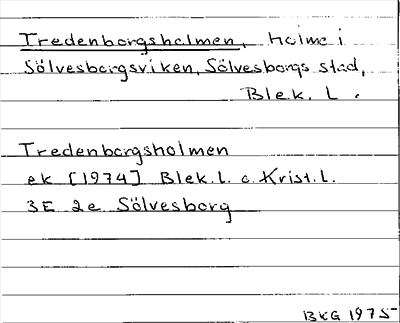 Tredenborgsholmen, holme i
Sölvesborgsviken, Sölvesborgs stad,
Blek. L.
Tredenborgsholmen
ek [1974] Blek. L. o. Krist. L.
3E 2e Sölvesborg
BKG 1975